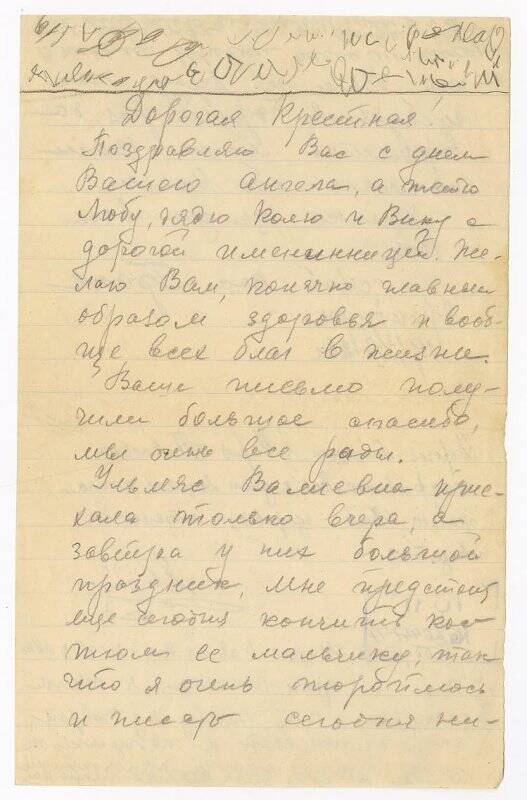 Дорогая Крестная!
Поздравляю Вас с днем
Вашего ангела, а тетю
Любу, дядю Колю и Вику с
дорогой именинницей. Же-
лаю Вам, конечно главным
образом здоровья и вооб-
ще всех благ в жизни.
Ваше письмо полу-
чили большое спасибо,
мы очень все рады.
Ульмяс Валиевна прие-
хала только вчера, а
завтра у них большой
праздник, мне предстоит
еще сегодня кончить кос-
тюм ее мальчику, так
что я очень тороплюсь
и писать сегодня ни-